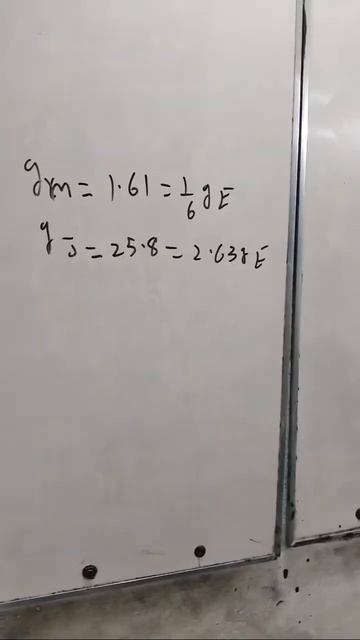 gm = 1.61 = 1/6 gE
gJ = 25.8 = 2.63gE